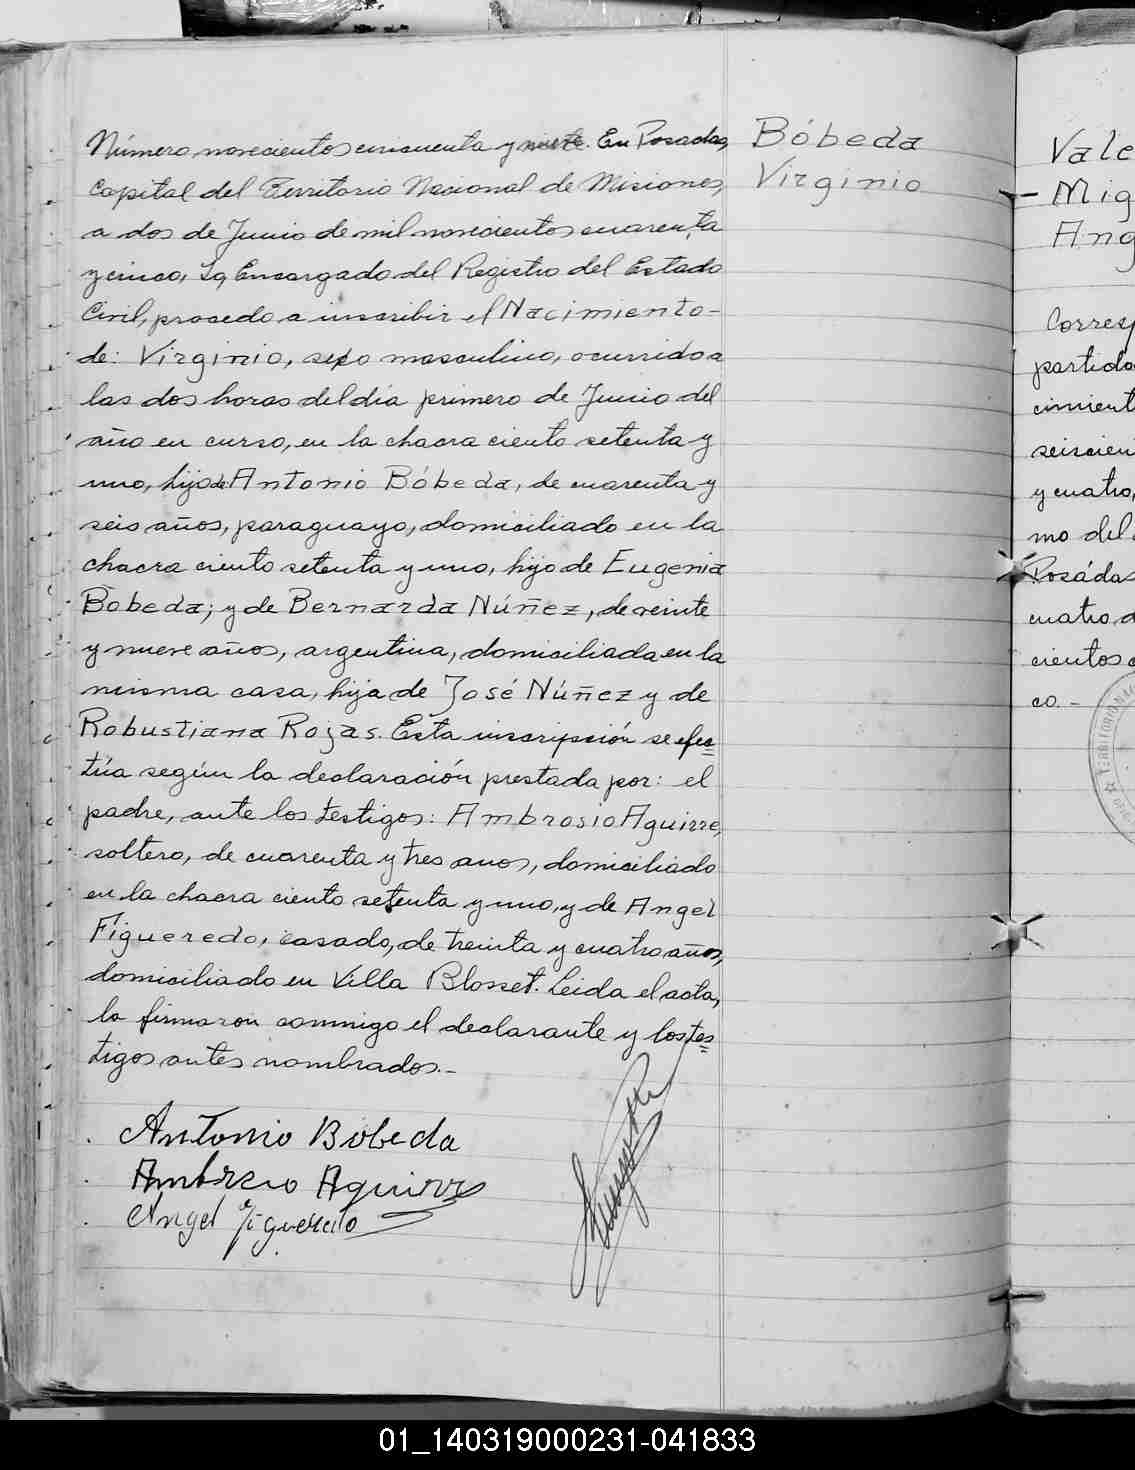 Bóbeda
Virginio
Número novecientos cincuenta y En Posadas,
Capital del Territorio Nacional de Misiones,
a dos de Junio de mil novecientos cuarenta
y cinco, Yo, Encargado del Registro del Estado
Civil, procedo a inscribir el Nacimiento-
de: Virginio, sexo masculino, ocurrido a
las dos horas del día primero de Junio del
año en curso, en la chacra ciento setenta y
uno, hijo de Antonio Bóbeda, de cuarenta y
seis años, paraguayo, domiciliado en la
chacra ciento setenta y uno, hijo de Eugenia
Bobeda; y de Bernarda Núñez, de veinte
y nueve años, argentina, domiciliada en la
misma casa, hija de José Núñez y de
Robustiana Rojas. Esta inscripción se efec=
túa según la declaración prestada por: el
padre, ante los testigos: Ambrosio Aguirre,
soltero, de cuarenta y tres anos, domiciliado
en la chacra ciento setenta y uno, y de Angel
Figueredo, casado, de treinta y cuatro años,
domiciliado en Villa Blosset. Leida el acta,
la firmaron conmigo el declarante y los tes=
tigos antes nombrados.-
Antonio Bobeda
Ambrsio Aguirre
Angel Figueredo
Vale
Mig
Ang
Corresp
partida
cimient
seiscien
y cuatro,
mo del
Posádas
cuatro d
cientos c
co.-
TERRITORIO NAC
01_140319000231-041833